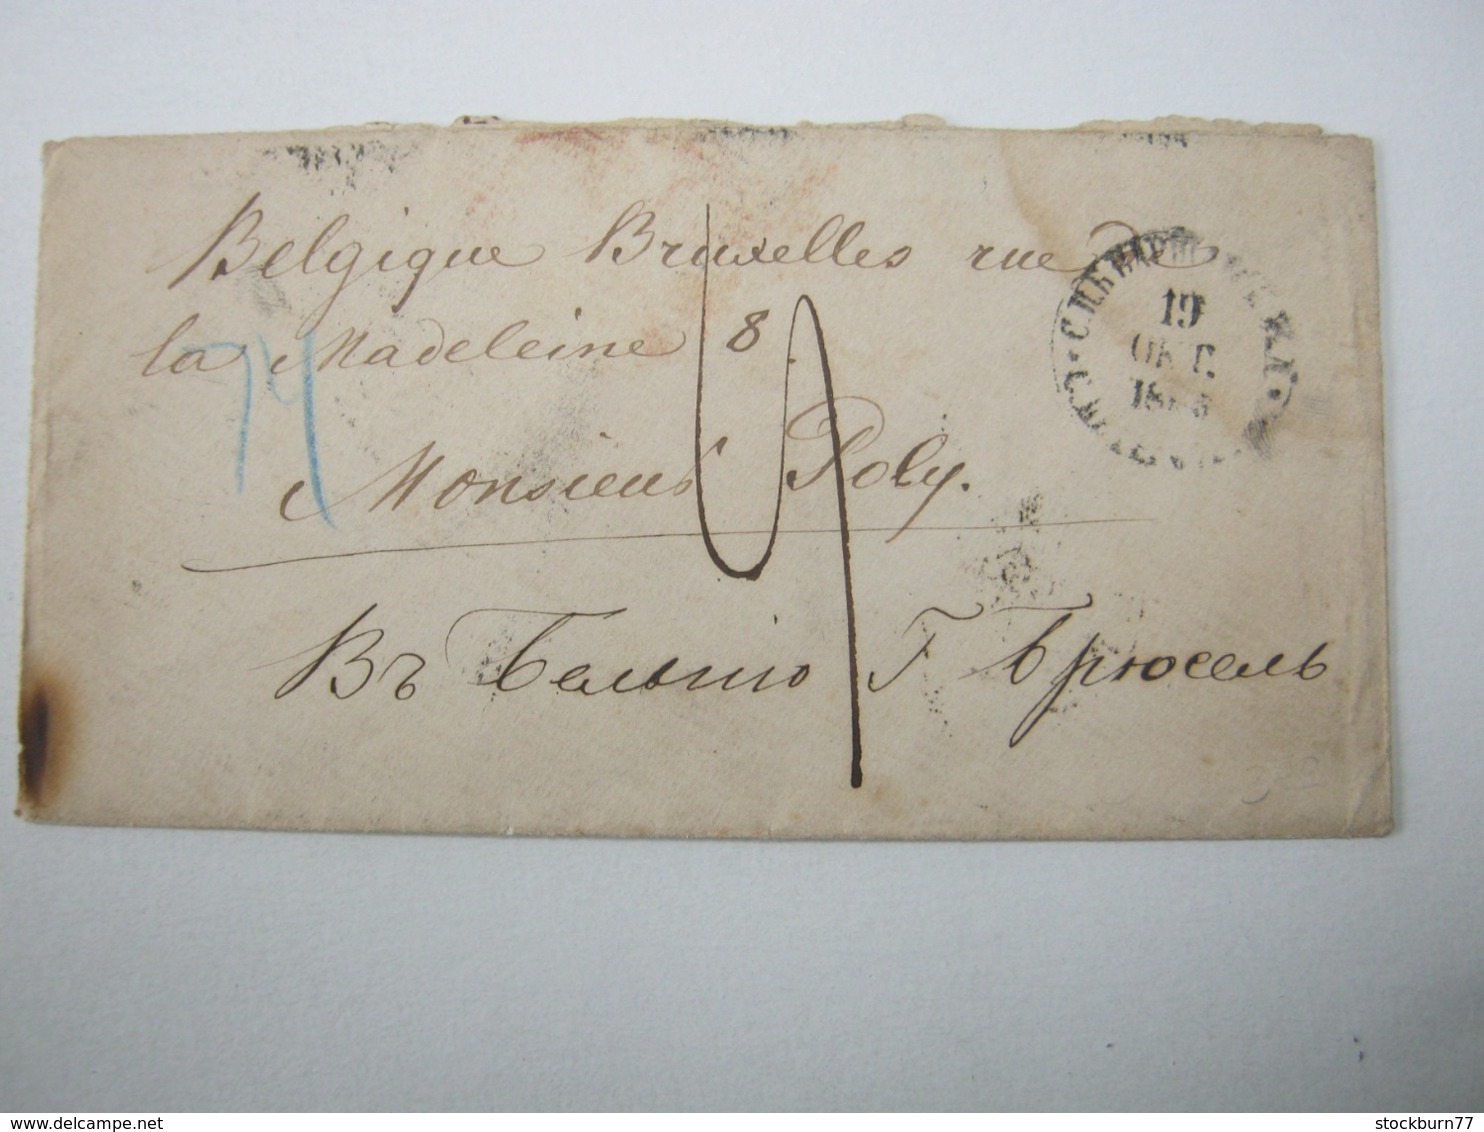 Belgique Bruxelles rue de
la Madeleine 8.
Monsieur Poly.
Въ Бельгію Г. Брюсель
19
ОКТ.
delcampe.net
stockburn77